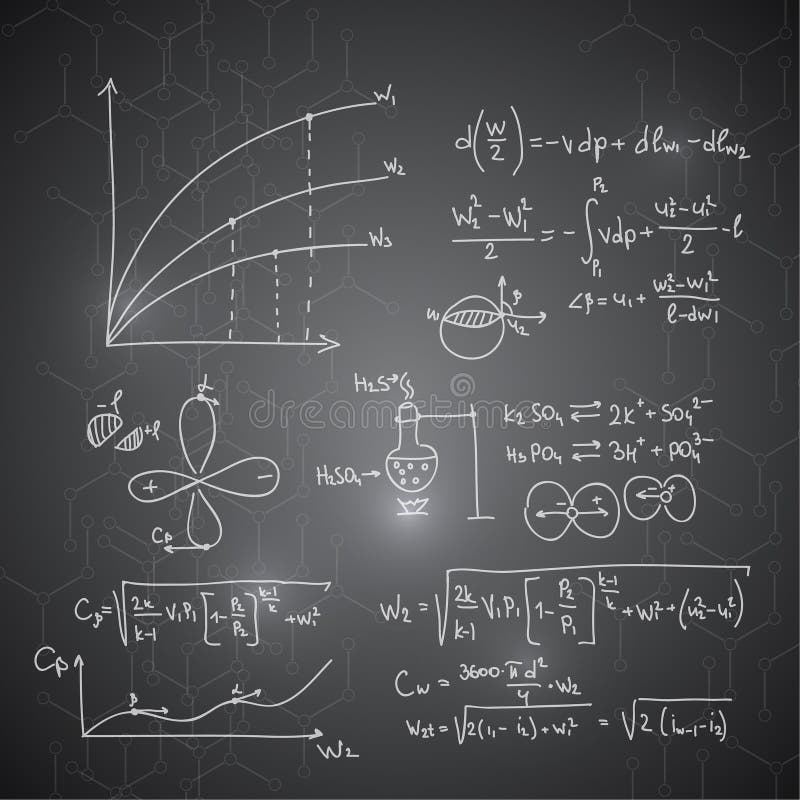 W₁
W₂
W₃
d(w/2) = -vdp + dlw₁ - dlw₂
(W₂² - W₁²)/2 = -∫_{P₁}^{P₂} vdp + (u₂² - u₁²)/2 - l
∠β = u₁ + (w₂² - w₁²)/(l - dw₁)
β
u₁
u₂
-l
+l
α
+
-
Cp
H₂S→
H₂SO₄→
K₂SO₄ ⇄ 2K⁺ + SO₄²⁻
H₃PO₄ ⇄ 3H⁺ + PO₄³⁻
- +
- +
dreamstime
Cᵦ = √(2k/(k-1) V₁P₁ [1 - P₂/P₂]^{(k-1)/k} + w₁²
W₂ = √(2k/(k-1) V₁P₁ [1 - P₂/P₁]^{(k-1)/k} + w₁² + (u₂² - u₁²)
Cp
β
α
W₂
C_w = (3600·πd²)/4 · w₂
W₂t = √(2(i₁ - i₂) + w₁²) = √(2(i_{w-1} - i₂)